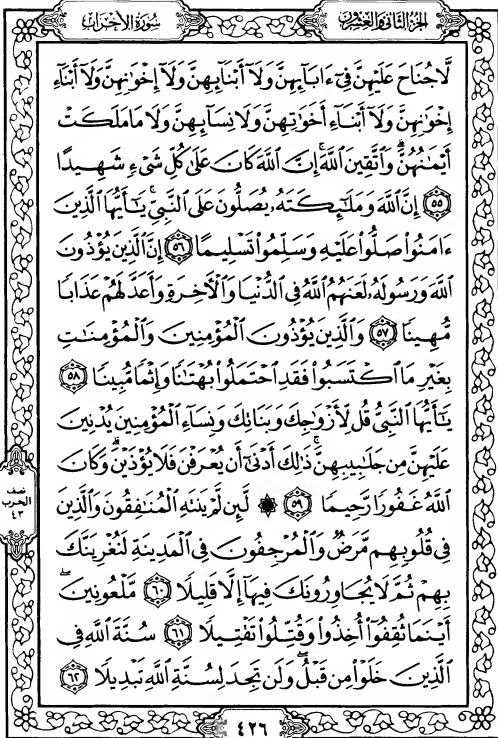 الجزء الثاني والعشرون
سورة الأحزاب
لَّا جُنَاحَ عَلَيْهِنَّ فِىٓ ءَابَآئِهِنَّ وَلَآ أَبْنَآئِهِنَّ وَلَآ إِخْوَٰنِهِنَّ وَلَآ أَبْنَآءِ
إِخْوَٰنِهِنَّ وَلَآ أَبْنَآءِ أَخَوَٰتِهِنَّ وَلَا نِسَآئِهِنَّ وَلَا مَا مَلَكَتْ
أَيْمَٰنُهُنَّ ۗ وَٱتَّقِينَ ٱللَّهَ ۚ إِنَّ ٱللَّهَ كَانَ عَلَىٰ كُلِّ شَىْءٍ شَهِيدًا
٥٥ إِنَّ ٱللَّهَ وَمَلَٰٓئِكَتَهُۥ يُصَلُّونَ عَلَى ٱلنَّبِىِّ ۚ يَٰٓأَيُّهَا ٱلَّذِينَ
ءَامَنُوا۟ صَلُّوا۟ عَلَيْهِ وَسَلِّمُوا۟ تَسْلِيمًا ٥٦ إِنَّ ٱلَّذِينَ يُؤْذُونَ
ٱللَّهَ وَرَسُولَهُۥ لَعَنَهُمُ ٱللَّهُ فِى ٱلدُّنْيَا وَٱلْءَاخِرَةِ وَأَعَدَّ لَهُمْ عَذَابًا
مُّهِينًا ٥٧ وَٱلَّذِينَ يُؤْذُونَ ٱلْمُؤْمِنِينَ وَٱلْمُؤْمِنَٰتِ
بِغَيْرِ مَا ٱكْتَسَبُوا۟ فَقَدِ ٱحْتَمَلُوا۟ بُهْتَٰنًا وَإِثْمًا مُّبِينًا ٥٨
يَٰٓأَيُّهَا ٱلنَّبِىُّ قُل لِّأَزْوَٰجِكَ وَبَنَاتِكَ وَنِسَآءِ ٱلْمُؤْمِنِينَ يُدْنِينَ
عَلَيْهِنَّ مِن جَلَٰبِيبِهِنَّ ۚ ذَٰلِكَ أَدْنَىٰٓ أَن يُعْرَفْنَ فَلَا يُؤْذَيْنَ ۗ وَكَانَ
ٱللَّهُ غَفُورًا رَّحِيمًا ٥٩ ۞ لَّئِن لَّمْ يَنتَهِ ٱلْمُنَٰفِقُونَ وَٱلَّذِينَ
فِى قُلُوبِهِم مَّرَضٌ وَٱلْمُرْجِفُونَ فِى ٱلْمَدِينَةِ لَنُغْرِيَنَّكَ
بِهِمْ ثُمَّ لَا يُجَاوِرُونَكَ فِيهَآ إِلَّا قَلِيلًا ٦٠ مَّلْعُونِينَ ۖ
أَيْنَمَا ثُقِفُوٓا۟ أُخِذُوا۟ وَقُتِّلُوا۟ تَقْتِيلًا ٦١ سُنَّةَ ٱللَّهِ فِى
ٱلَّذِينَ خَلَوْا۟ مِن قَبْلُ ۖ وَلَن تَجِدَ لِسُنَّةِ ٱللَّهِ تَبْدِيلًا ٦٢
نصف
الحزب
٤٣
٤٢٦